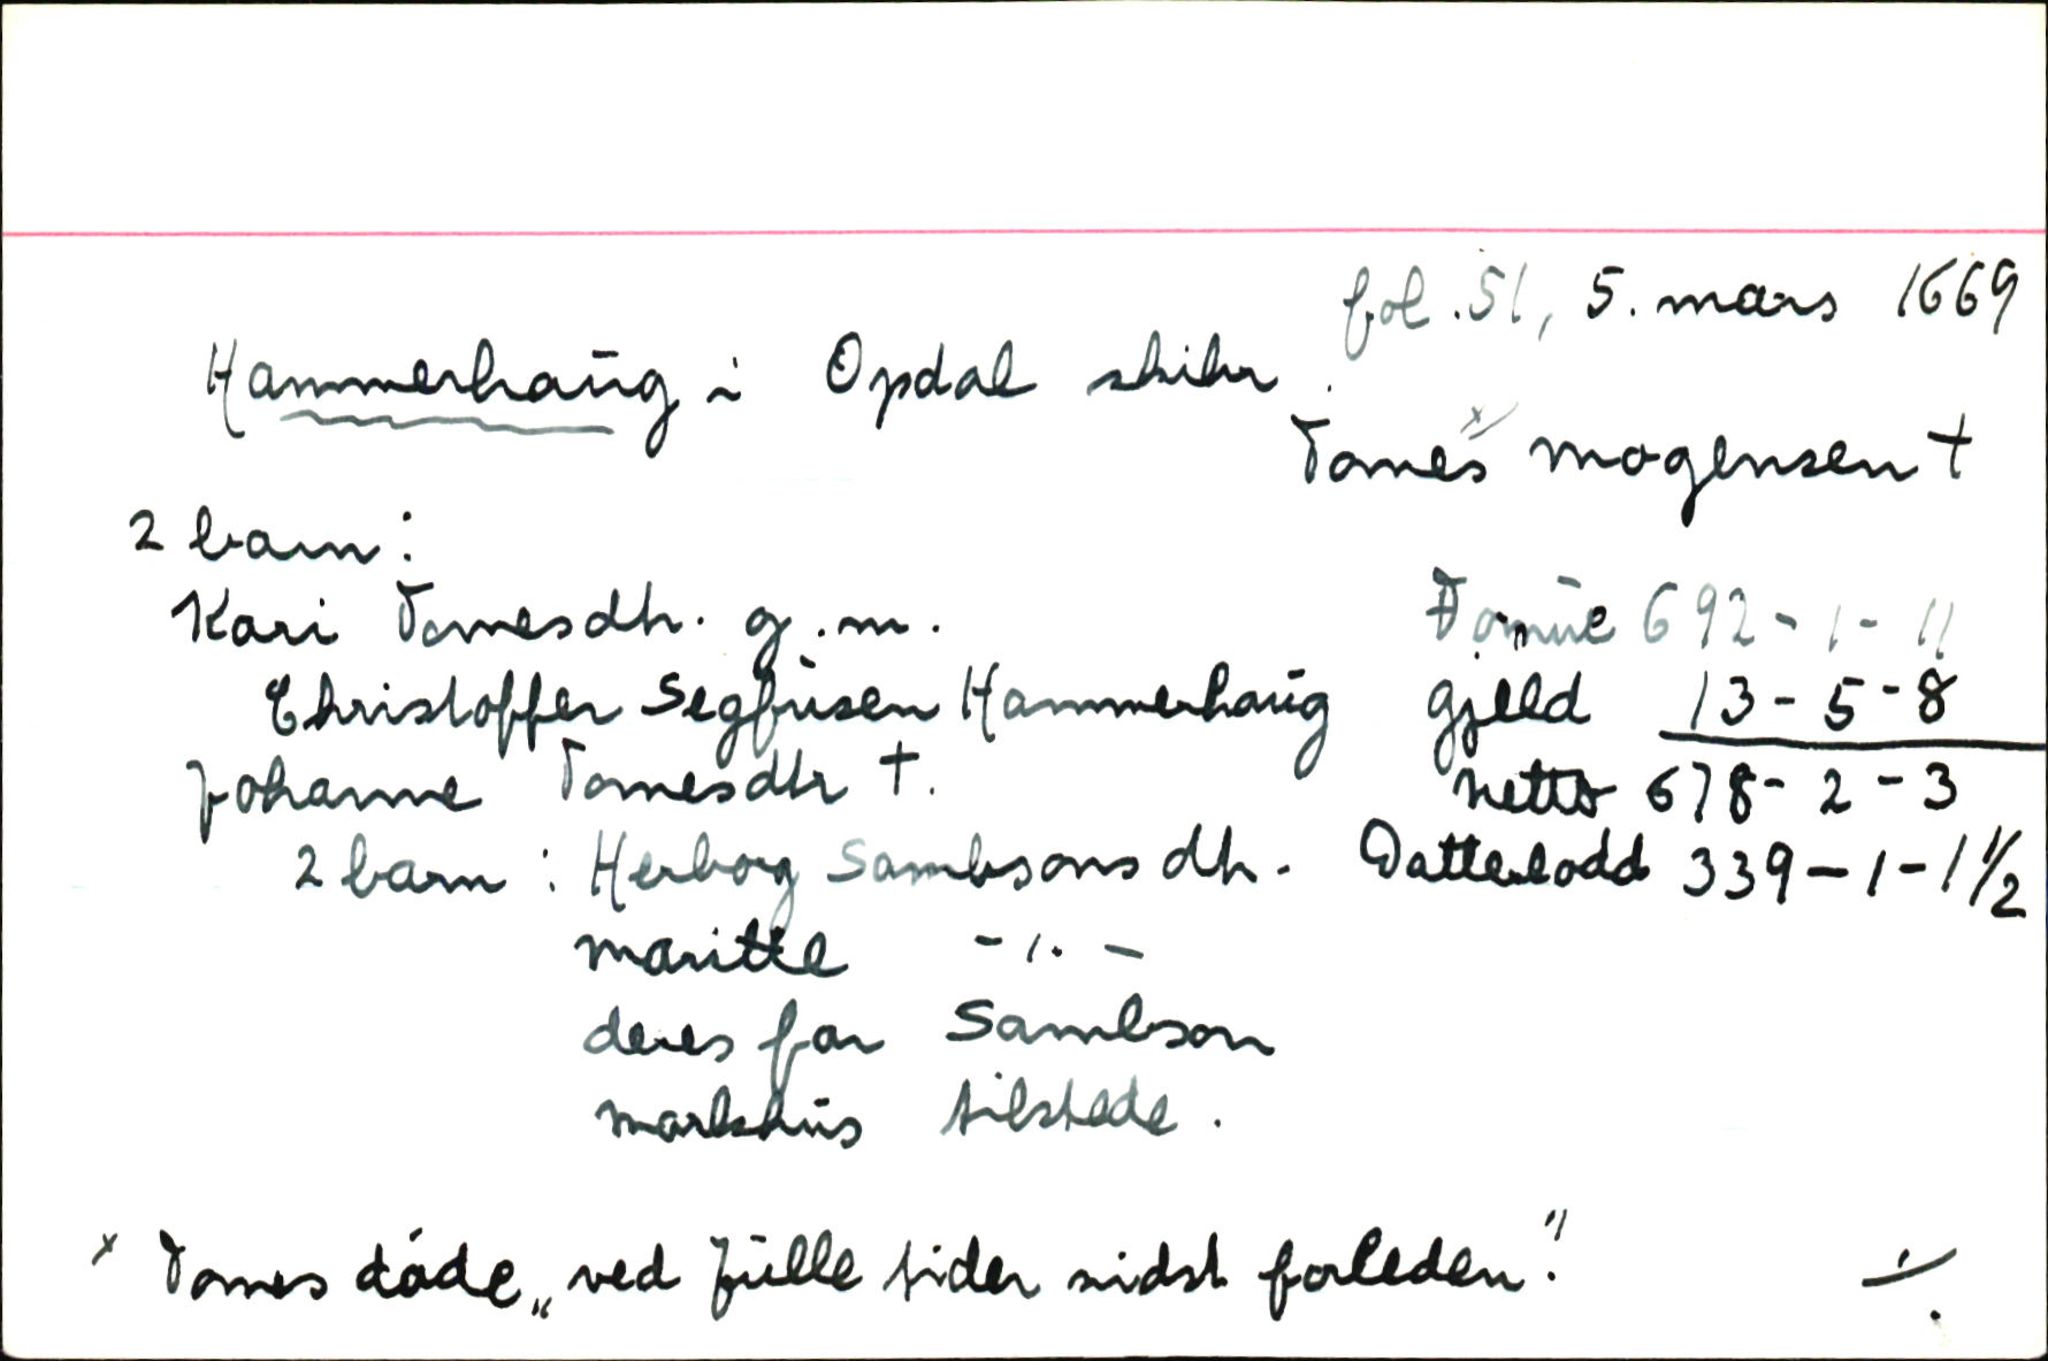 fol. 51, 5. mars 1669
Hammerhaug i Opdal skibr.
Tomes x) Mogensen †
2 barn:
Kari Tomesdtr. g.m.
Christoffer Segfusen Hammerhaug
Johanne Tomesdtr †.
2 barn: Herborg Sambsonsdtr.
Maritte -"-
deres far Sambson
Markhus tilstede.
Formue 692-1-11
gjeld 13-5-8
Netto 678-2-3
Datterlodd 339-1-1 1/2
x Tomes døde „ved Julle tider sidst forleden."